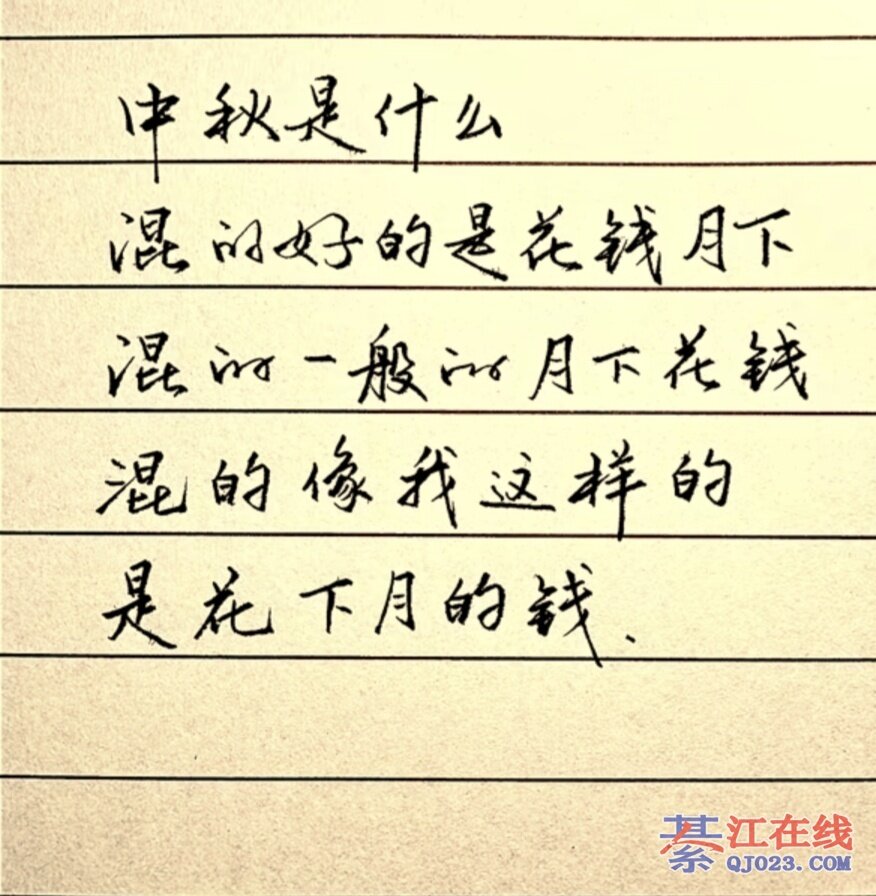 中秋是什么
混的好的是花钱月下
混的一般的月下花钱
混的像我这样的
是花下月的钱、
綦江在线
QJ023.COM